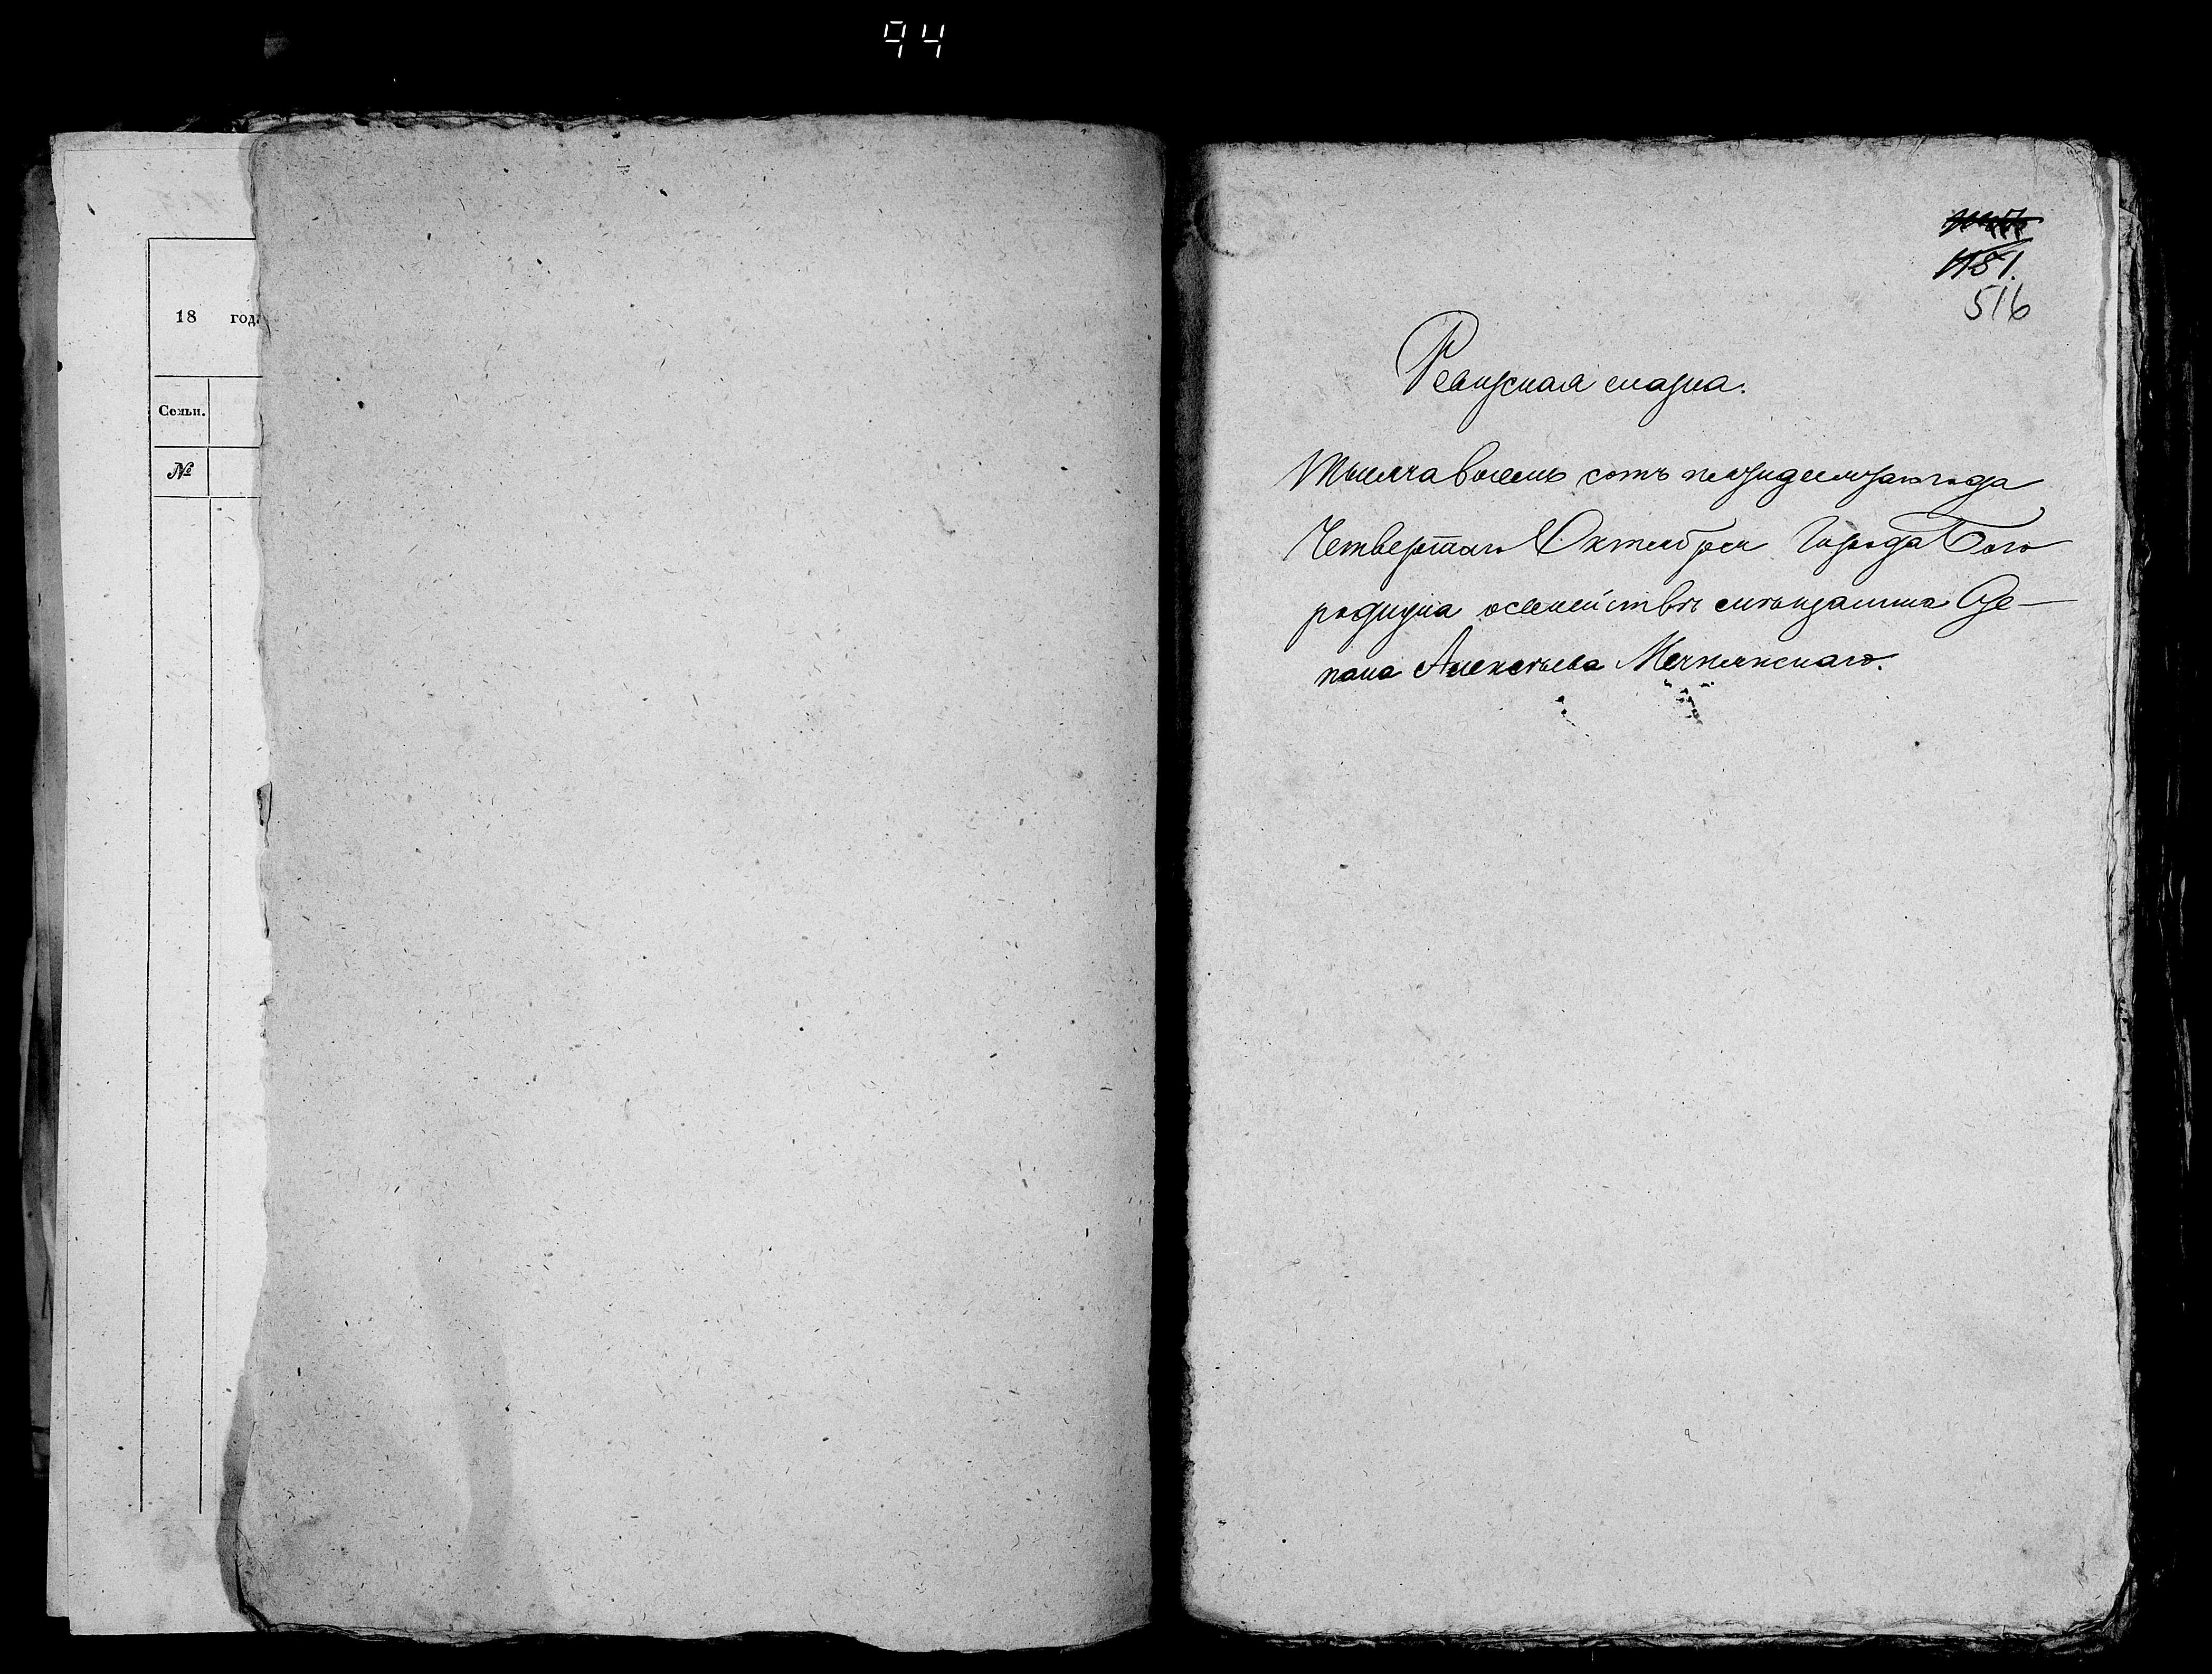 94
18 год
Семьи.
№
1181.
516
Ревизская сказка.
Тысяча восемь сотъ пятидесятаго года
Четвертаго Октября Города Бого
родицка о семействѣ мѣщанина Сте-
пана Алексѣева Мечнянскаго.